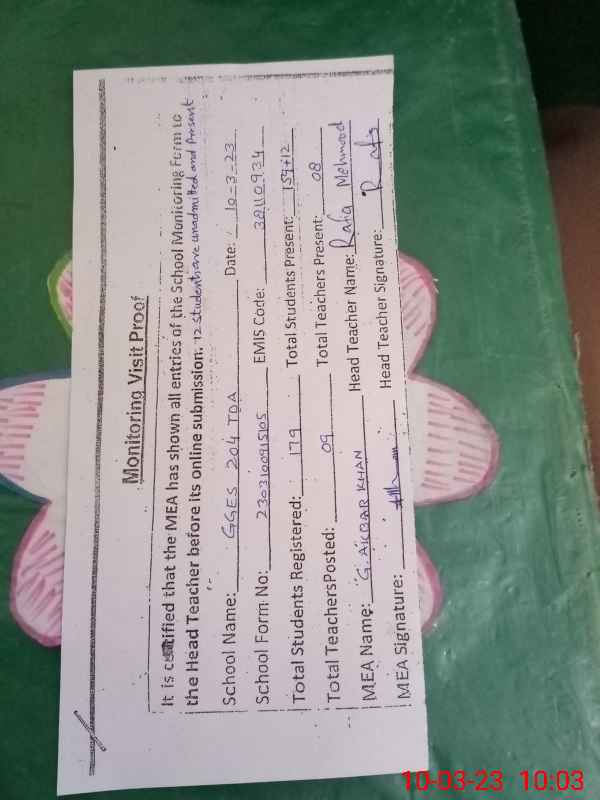 Monitoring Visit Proof
It is certified that the MEA has shown all entries of the School Monitoring Form to
the Head Teacher before its online submission. 12 students are unadmitted and Present
School Name: GGES 204 TDA Date: 10-3-23
School Form No: 230310091505 EMIS Code: 38110934
Total Students Registered: 179 Total Students Present: 159+12
Total TeachersPosted: 09 Total Teachers Present: 08
MEA Name: G. AKBAR KHAN Head Teacher Name: Rafia Mehmood
MEA Signature: Head Teacher Signature:
10-03-23 10:03